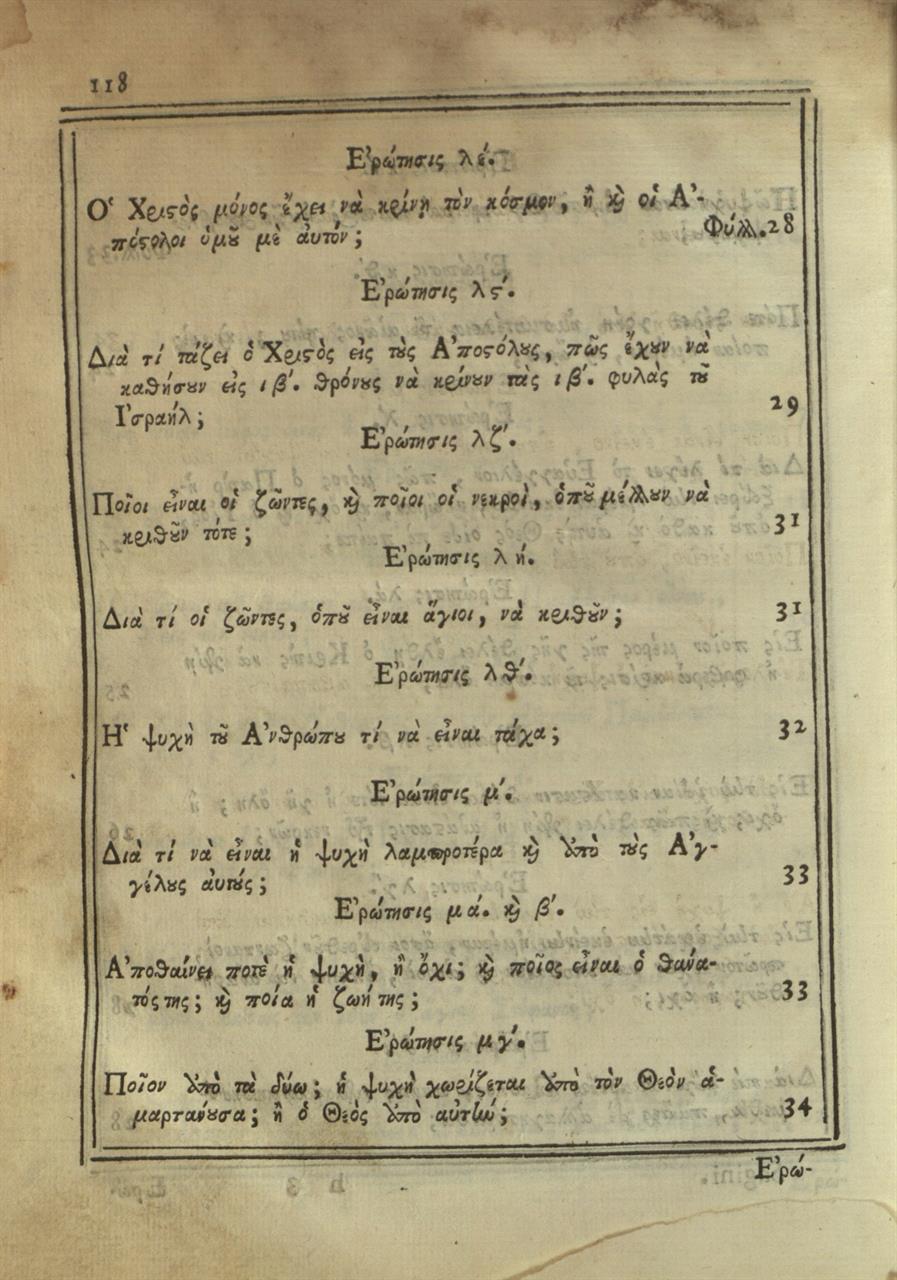 118
Ἐρώτησις λέ.
Ὁ Χριστὸς μόνος ἔχει νὰ κρίνῃ τὸν κόσμον, ἢ ϗ οἱ Ἀ-
πόστολοι ὁμοῦ μὲ αὐτόν; Φύλλ. 28
Ἐρώτησις λϛ΄.
Διὰ τί τάζει ὁ Χριστὸς εἰς τοὺς Ἀποστόλους, πῶς ἔχουν νὰ
καθήσουν εἰς ιβ΄. θρόνους νὰ κρίνουν τὰς ιβ΄. φυλὰς τοῦ
Ἰσραήλ; 29
Ἐρώτησις λζ΄.
Ποῖοι εἶναι οἱ ζῶντες, ϗ ποῖοι οἱ νεκροὶ, ὁποῦ μέλλουν νὰ
κριθοῦν τότε; 31
Ἐρώτησις λή.
Διὰ τί οἱ ζῶντες, ὁποῦ εἶναι ἅγιοι, νὰ κριθοῦν; 31
Ἐρώτησις λθ΄.
Ἡ ψυχὴ τοῦ Ἀνθρώπου τί νὰ εἶναι τάχα; 32
Ἐρώτησις μ΄.
Διὰ τί νὰ εἶναι ἡ ψυχὴ λαμπροτέρα ϗ ἀπὸ τοὺς Ἀγ-
γέλους αὐτούς; 33
Ἐρώτησις μά. ϗ β΄.
Ἀποθαίνει ποτὲ ἡ ψυχὴ, ἢ ὄχι; ϗ ποῖος εἶναι ὁ θάνα-
τός της; ϗ ποία ἡ ζωή της; 33
Ἐρώτησις μγ΄.
Ποῖον ἀπὸ τὰ δύω; ἡ ψυχὴ χωρίζεται ἀπὸ τὸν Θεὸν ἁ-
μαρτάνουσα; ἢ ὁ Θεὸς ἀπὸ αὐτήν; 34
Ἐρώ-